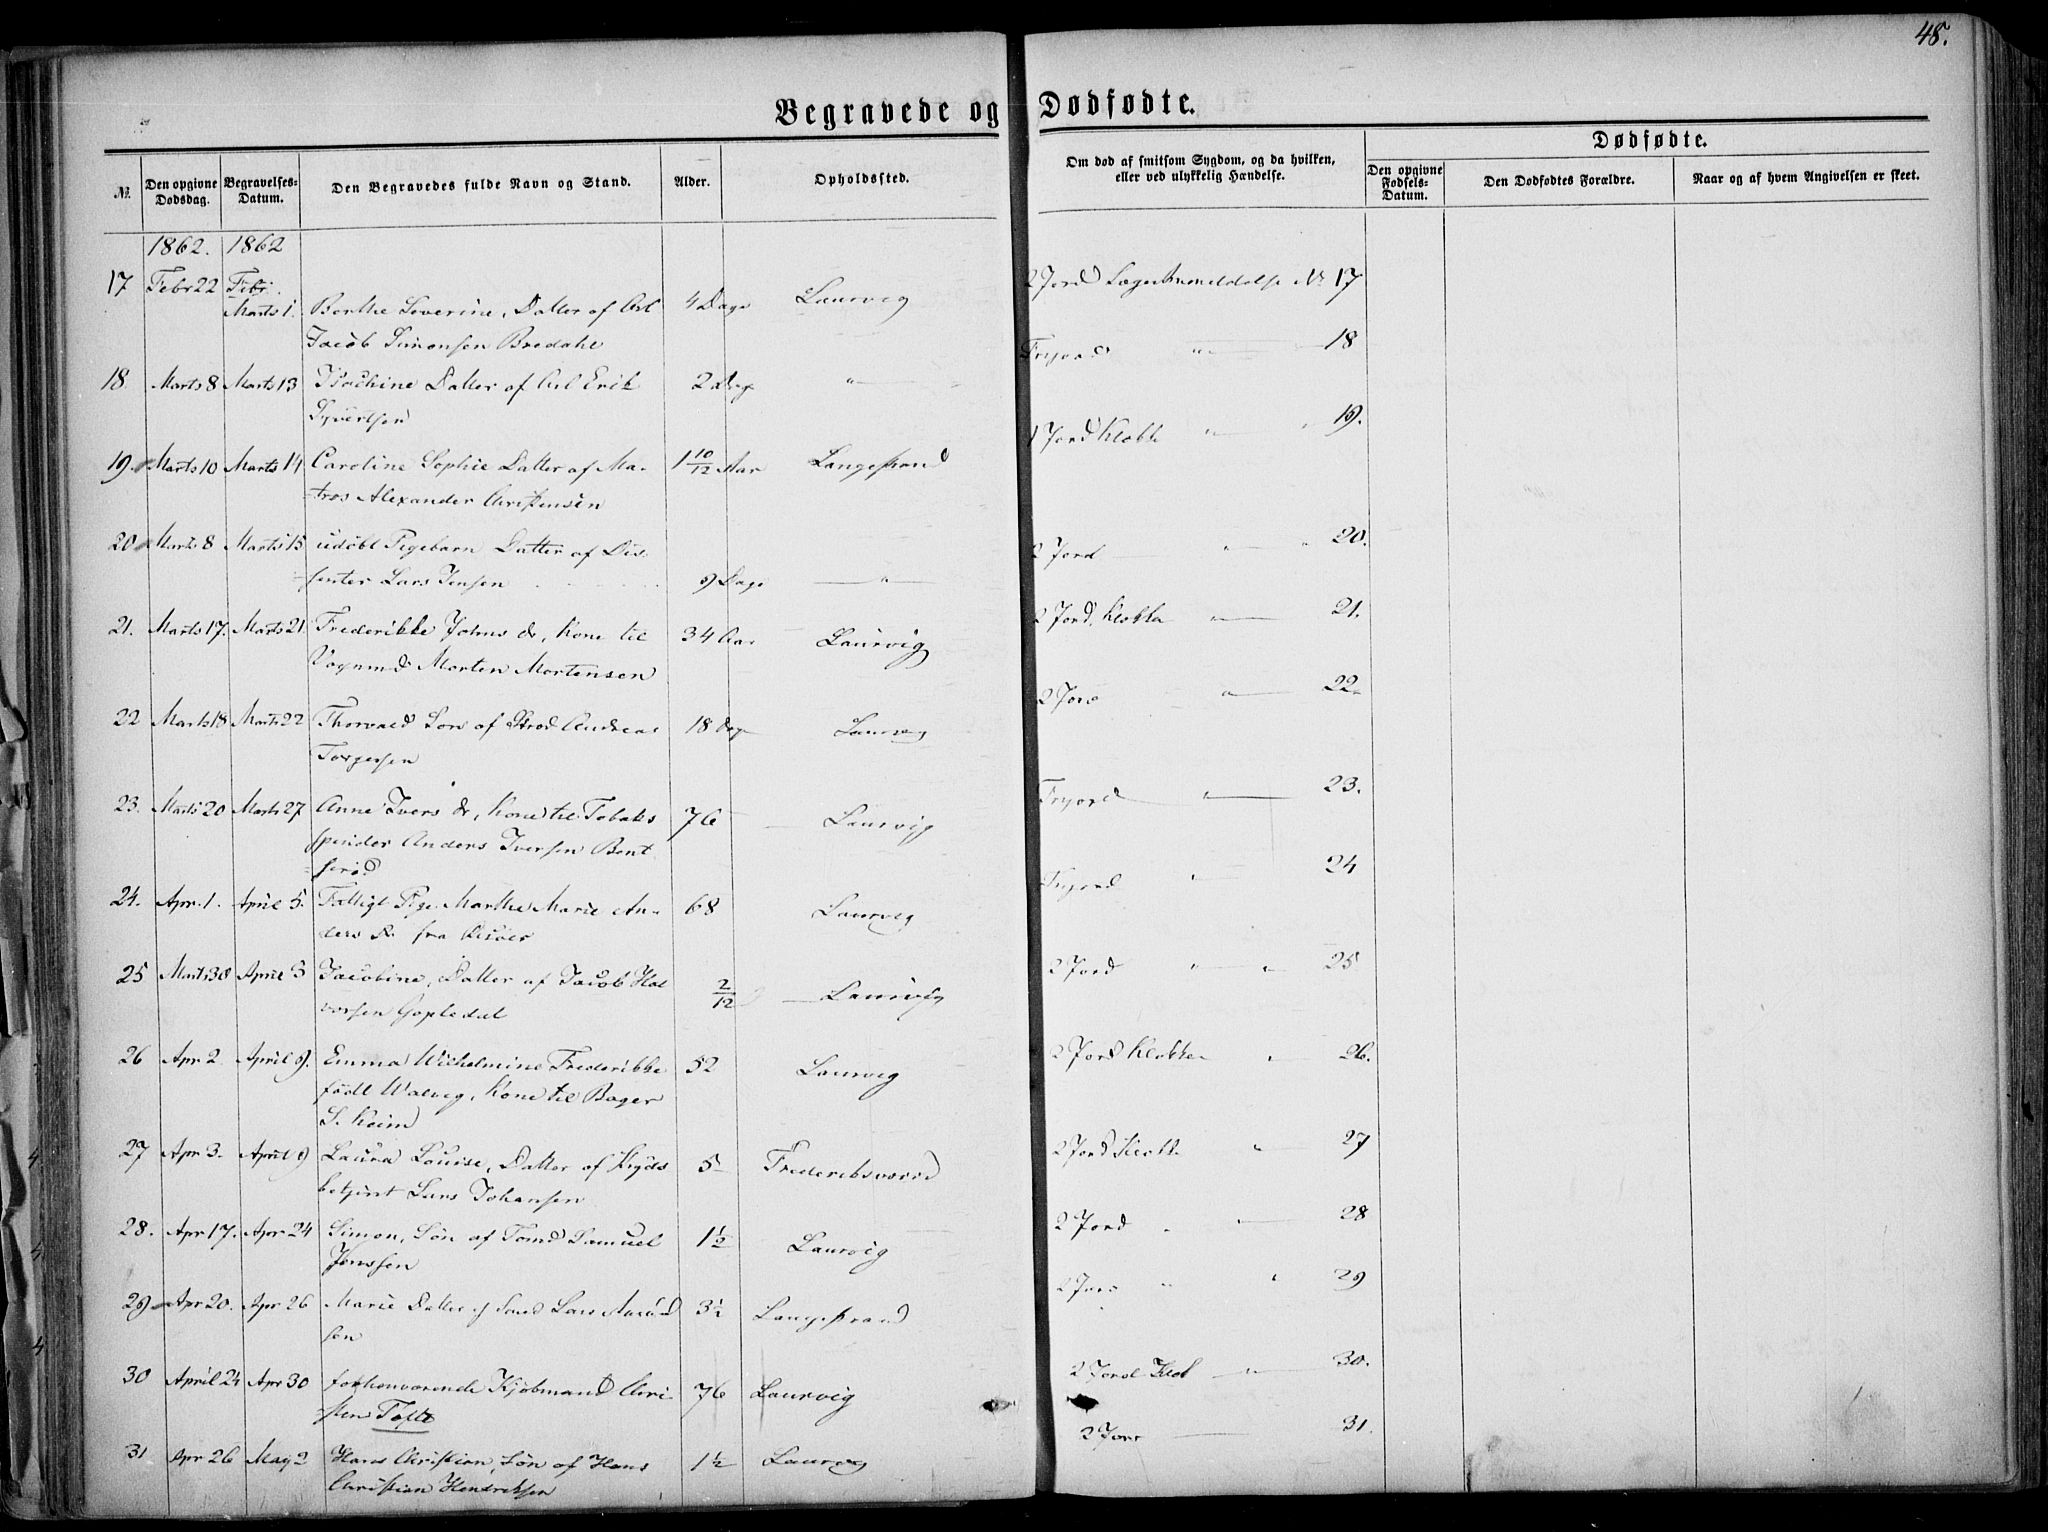 48.
Begravede og Dødfødte.
№
Den opgivne Dødsdag.
Begravelses-Datum.
Den Begravedes fulde Navn og Stand.
Alder.
Opholdssted.
Om død af smitsom Sygdom, og da hvilken, eller ved ulykkelig Hændelse.
Dødfødte.
Den opgivne Fødsels-Datum.
Den Dødfødtes Forældre.
Naar og af hvem Angivelsen er skeet.
1862. 1862
17 Febr 22 Febr. Marts 1. Berthe Severine, Datter af Arb. 4 Dage Laurvig 2 Jord Lægeanmeldelse No 17
Jacob Simonsen Bredahl
18 Marts 8 Marts 13 Datter af Arb Erik 2 Dage " Frijord " 18
Syvertsen
19. Marts 10 Marts 14 Caroline Sophie Datter af Ma- 1 10/12 Aar Langestrand 1 Jord Klokke " 19.
tros Alexander Christensen
20 Marts 8 Marts 15 udøbt Pigebarn Datter af Dis- 2 Jord " 20.
senter Lars Jensen 9 Dage "
21. Marts 17. Marts 21 Frederikke Johns dr, Kone til 34 Aar Laurvig 2 Jord, Klokke " 21.
Vognmd Morten Mortensen
22 Marts 18 Marts 22 Thorvald Søn af Andreas 18 Dage Laurvig 2 Jord " 22
Torgersen
23. Marts 20 Marts 27 Anne Ivers dr, Kone til Tobaks 76 Laurvig Frijord " 23.
spinder Anders Iversen Bent
serød
24. Apr. 1. April 5. Fattigt Pige Marthe Marie An- 68 Laurvig Frijord " 24
ders dr. fra
25 Marts 30 April 3 Jacobine, Datter af Jacob Hal 2/12 Laurvig 2 Jord " " 25
vorsen Gopledal
26 Apr 2 April 9. Emma Wilhelmine Frederikke 52 Laurvig 2 Jord Klokke " 26.
født Walvig, Kone til Bager
S. Keim
27 Apr 3. April 9 Laura Louise, Datter af Kryds 5 Frederiksværn 2 Jord Klokke " 27
betjent Lars Johansen
28. Apr 17. Apr 24 Simon, Søn af Tømd Samuel 1½ Laurvig 2 Jord " 28
Jenssen
29 Apr 20. Apr 26 Marie Datter af Lars 3½ Langestrand 2 Jord " " 29
sen
30 April 24 Apr 30 forhenværende Kjøbmand Chri- 76 Laurvig 2 Jord Klok " 30.
sten Tofte
31 Apr 26 May 2 Hans Christian, Søn af Hans 1½ Laurvig 2 Jord 31.
Christian Hendriksen